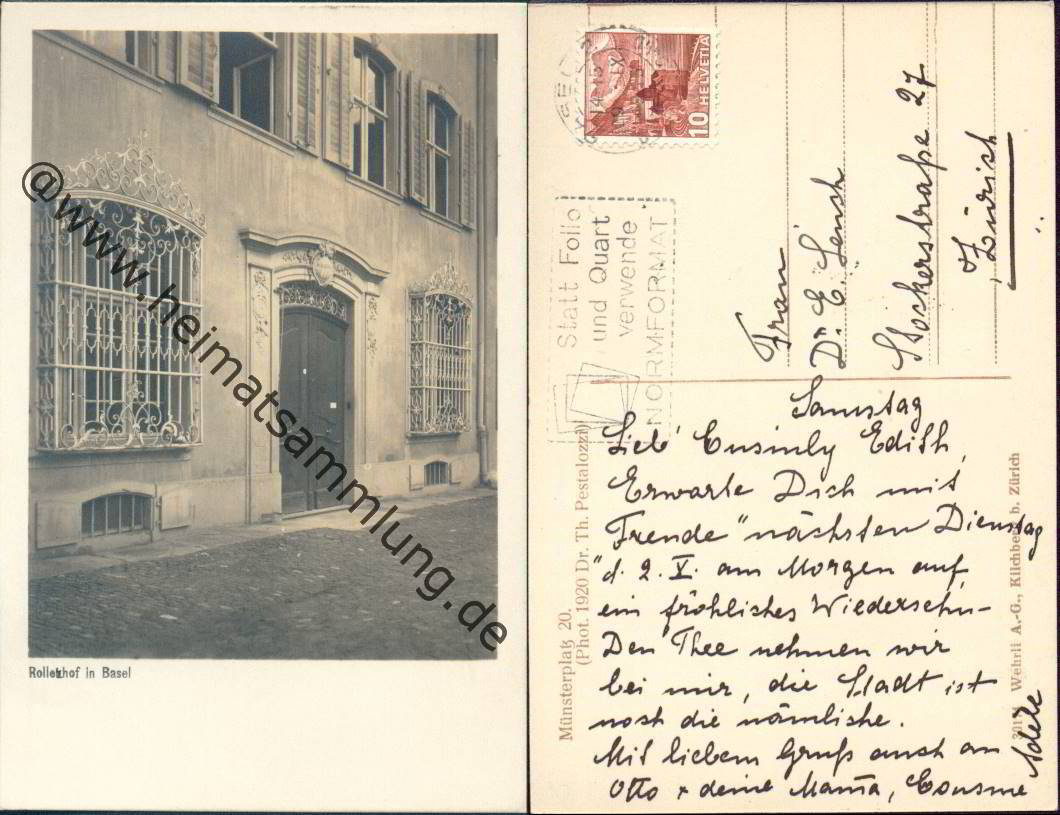 @www.heimatsammlung.de
Rollerhof in Basel
10 HELVETIA
Statt Folio
und Quart
verwende
NORMFORMAT
Frau
Dr. E.
27
Zürich
Samstag
Lieb' Cusinly Edith,
Erwarte Dich mit
Freude "nächsten Dienstag
"d. 2. V. am Morgen auf
ein fröhliches Wiedersehn-
Den Thee nehmen wir
bei mir, die Stadt ist
noch die nämliche.
Mit liebem Gruß auch an
Otto + deine Mama, Cousine
Adele
Münsterplatz 20.
(Phot. 1920 Dr. Th. Pestalozzi)
Wehrli A.-G., Kilchberg b. Zürich